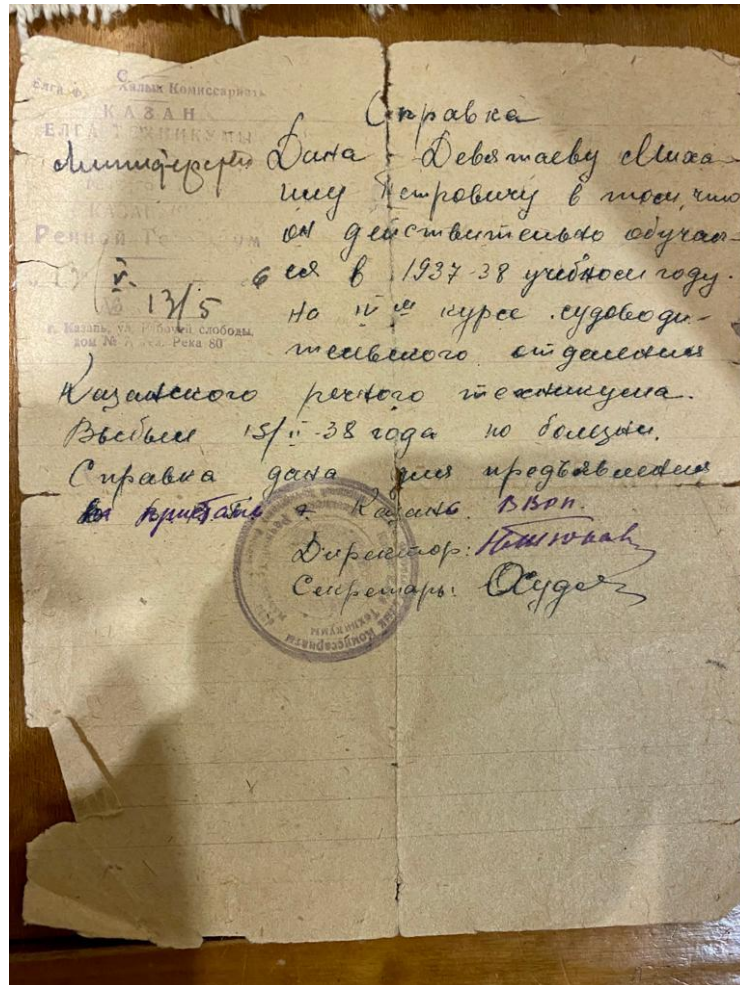 Халык Комиссариаты
КАЗАН
ЕЛГА ТЕХНИКУМЫ
КАЗАН
Речной
V.
13/5
г. Казань, ул. Рабочей слободы,
дом № Река 80
Справка
Дана Девятаеву Миха-
илу Петровичу в том, что
он действительно обучал-
ся в 1937-38 учебном году.
на IV м курсе судоводи-
тельского отделения
Казанского речного техникума.
Выбыл 15/II-38 года по болезни.
Справка дана для предъявления
на пристань Казань
Директор:
Секретарь:
Комиссариаты
Техникумы